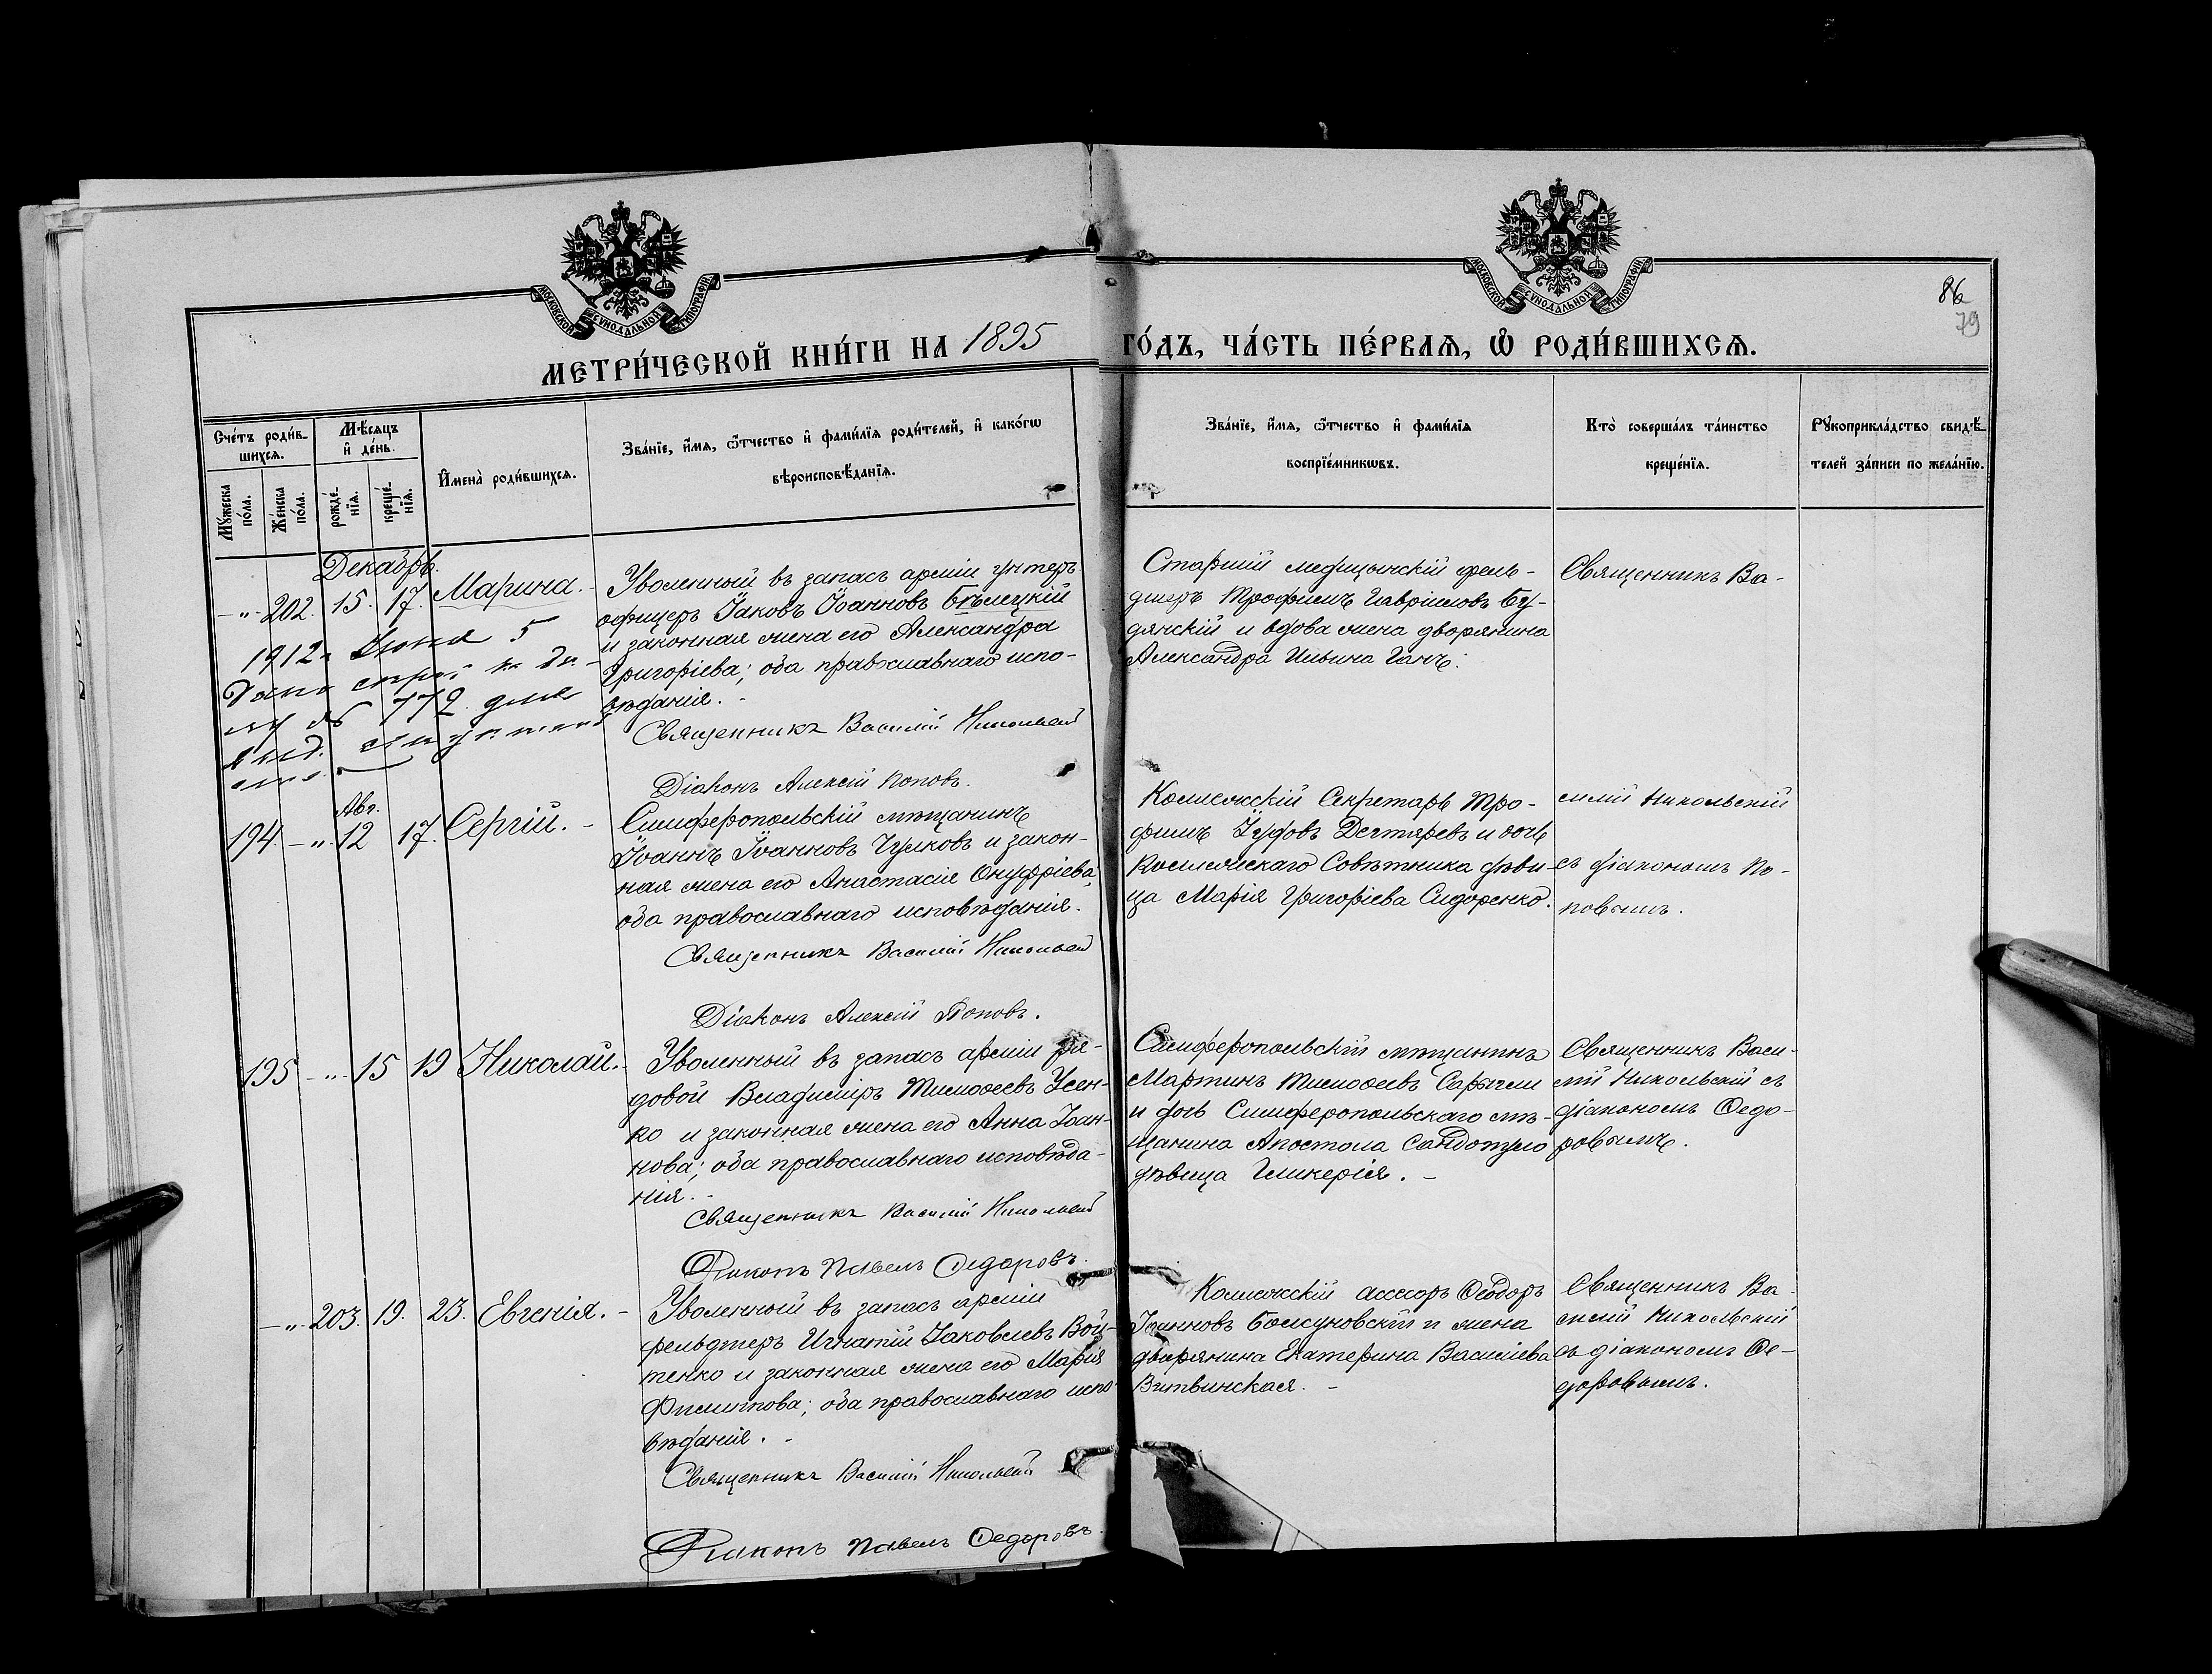 МОСКОВСКОЙ СУНОДАЛЬНОЙ ТИПОГРАФІИ
МОСКОВСКОЙ СУНОДАЛЬНОЙ ТИПОГРАФІИ
86
79
МЕТРИ́ЧЕСКОЙ КНИ́ГИ НА 1895 ГО́ДЪ, ЧА́СТЬ ПЕ́РВАѦ, Ѡ҆ РОДИ́ВШИХСѦ.
Сче́тъ роди́в-
шихсѧ.
Мꙋ́жеска по́ла.
Же́нска по́ла.
Мѣ́сѧцъ
и҆ де́нь.
рожде́-
нїѧ.
креще́-
нїѧ.
И҆мена̀ роди́вшихсѧ.
Зва́нїе, и҆́мѧ, ѻ҆́тчество и҆ фами́лїѧ роди́телей, и҆ како́гѡ
вѣроисповѣ́данїѧ.
Зва́нїе, и҆́мѧ, ѻ҆́тчество и҆ фами́лїѧ
воспрїе́мникѡвъ.
Кто̀ соверша́лъ та́инство
креще́нїѧ.
Рꙋкоприкла́дство свидѣ́-
телей за́писи по жела́нїю.
Декабрь.
-"- 202. 15. 17. Марина. -
Уволенный въ запасъ арміи унтеръ
офицеръ Іаковъ Іоанновъ Бѣлецкій
и законная жена его Александра
Григоріева; оба православнаго испо-
вѣданія. -
Священникъ Василій Никольскій
Діаконъ Алексій Поповъ.
Старшій медицынскій фель-
дшеръ Трофимъ Гавріиловъ Бу-
дянскій и вдова жена дворянина
Александра Ильина Ганъ.
Священникъ Ва-
силій Никольскій
съ діакономъ По-
повымъ.
1912 г. Іюня 5
772 для
Авг.
194. -"- 12 17. Сергій. -
Симферопольскій мѣщанинъ
Іоаннъ Іоанновъ Чулковъ и закон-
ная жена его Анастасія Онуфріева,
оба православнаго исповѣданія.
Священникъ Василій Никольскій
Діаконъ Алексій Поповъ.
Коллежскій Секретарь Тро-
фимъ Іудовъ Дегтяревъ и дочь
Коллежскаго Совѣтника дѣви-
ца Марія Григоріева Сидоренко.
195 -"- 15 19 Николай. -
Уволенный въ запасъ арміи ря-
довой Владиміръ Тимоѳеевъ Усен-
ко и законная жена его Анна Іоан-
нова; оба православнаго исповѣда-
нія. -
Священникъ Василій Никольскій
Діаконъ Павелъ Ѳедоровъ.
Симферопольскій мѣщанинъ
Мартинъ Тимоѳеевъ
и дочь Симферопольскаго мѣ-
щанина Апостола
дѣвица Гликерія. -
Священникъ Васи-
лій Никольскій съ
діакономъ Ѳедо-
ровымъ.
-"- 203. 19. 23. Евгенія. -
Уволенный въ запасъ арміи
фельдшеръ Игнатій Іаковлевъ Вой-
тенко и законная жена его Марія
Филиппова; оба православнаго испо-
вѣданія. -
Священникъ Василій Никольскій
Діаконъ Павелъ Ѳедоровъ.
Коллежскій ассесоръ Ѳеодоръ
Іоанновъ Болсуновскій и жена
дворянина Екатерина Василіева
Витвинская. -
Священникъ Ва-
силій Никольскій
съ діакономъ Ѳе-
доровымъ.